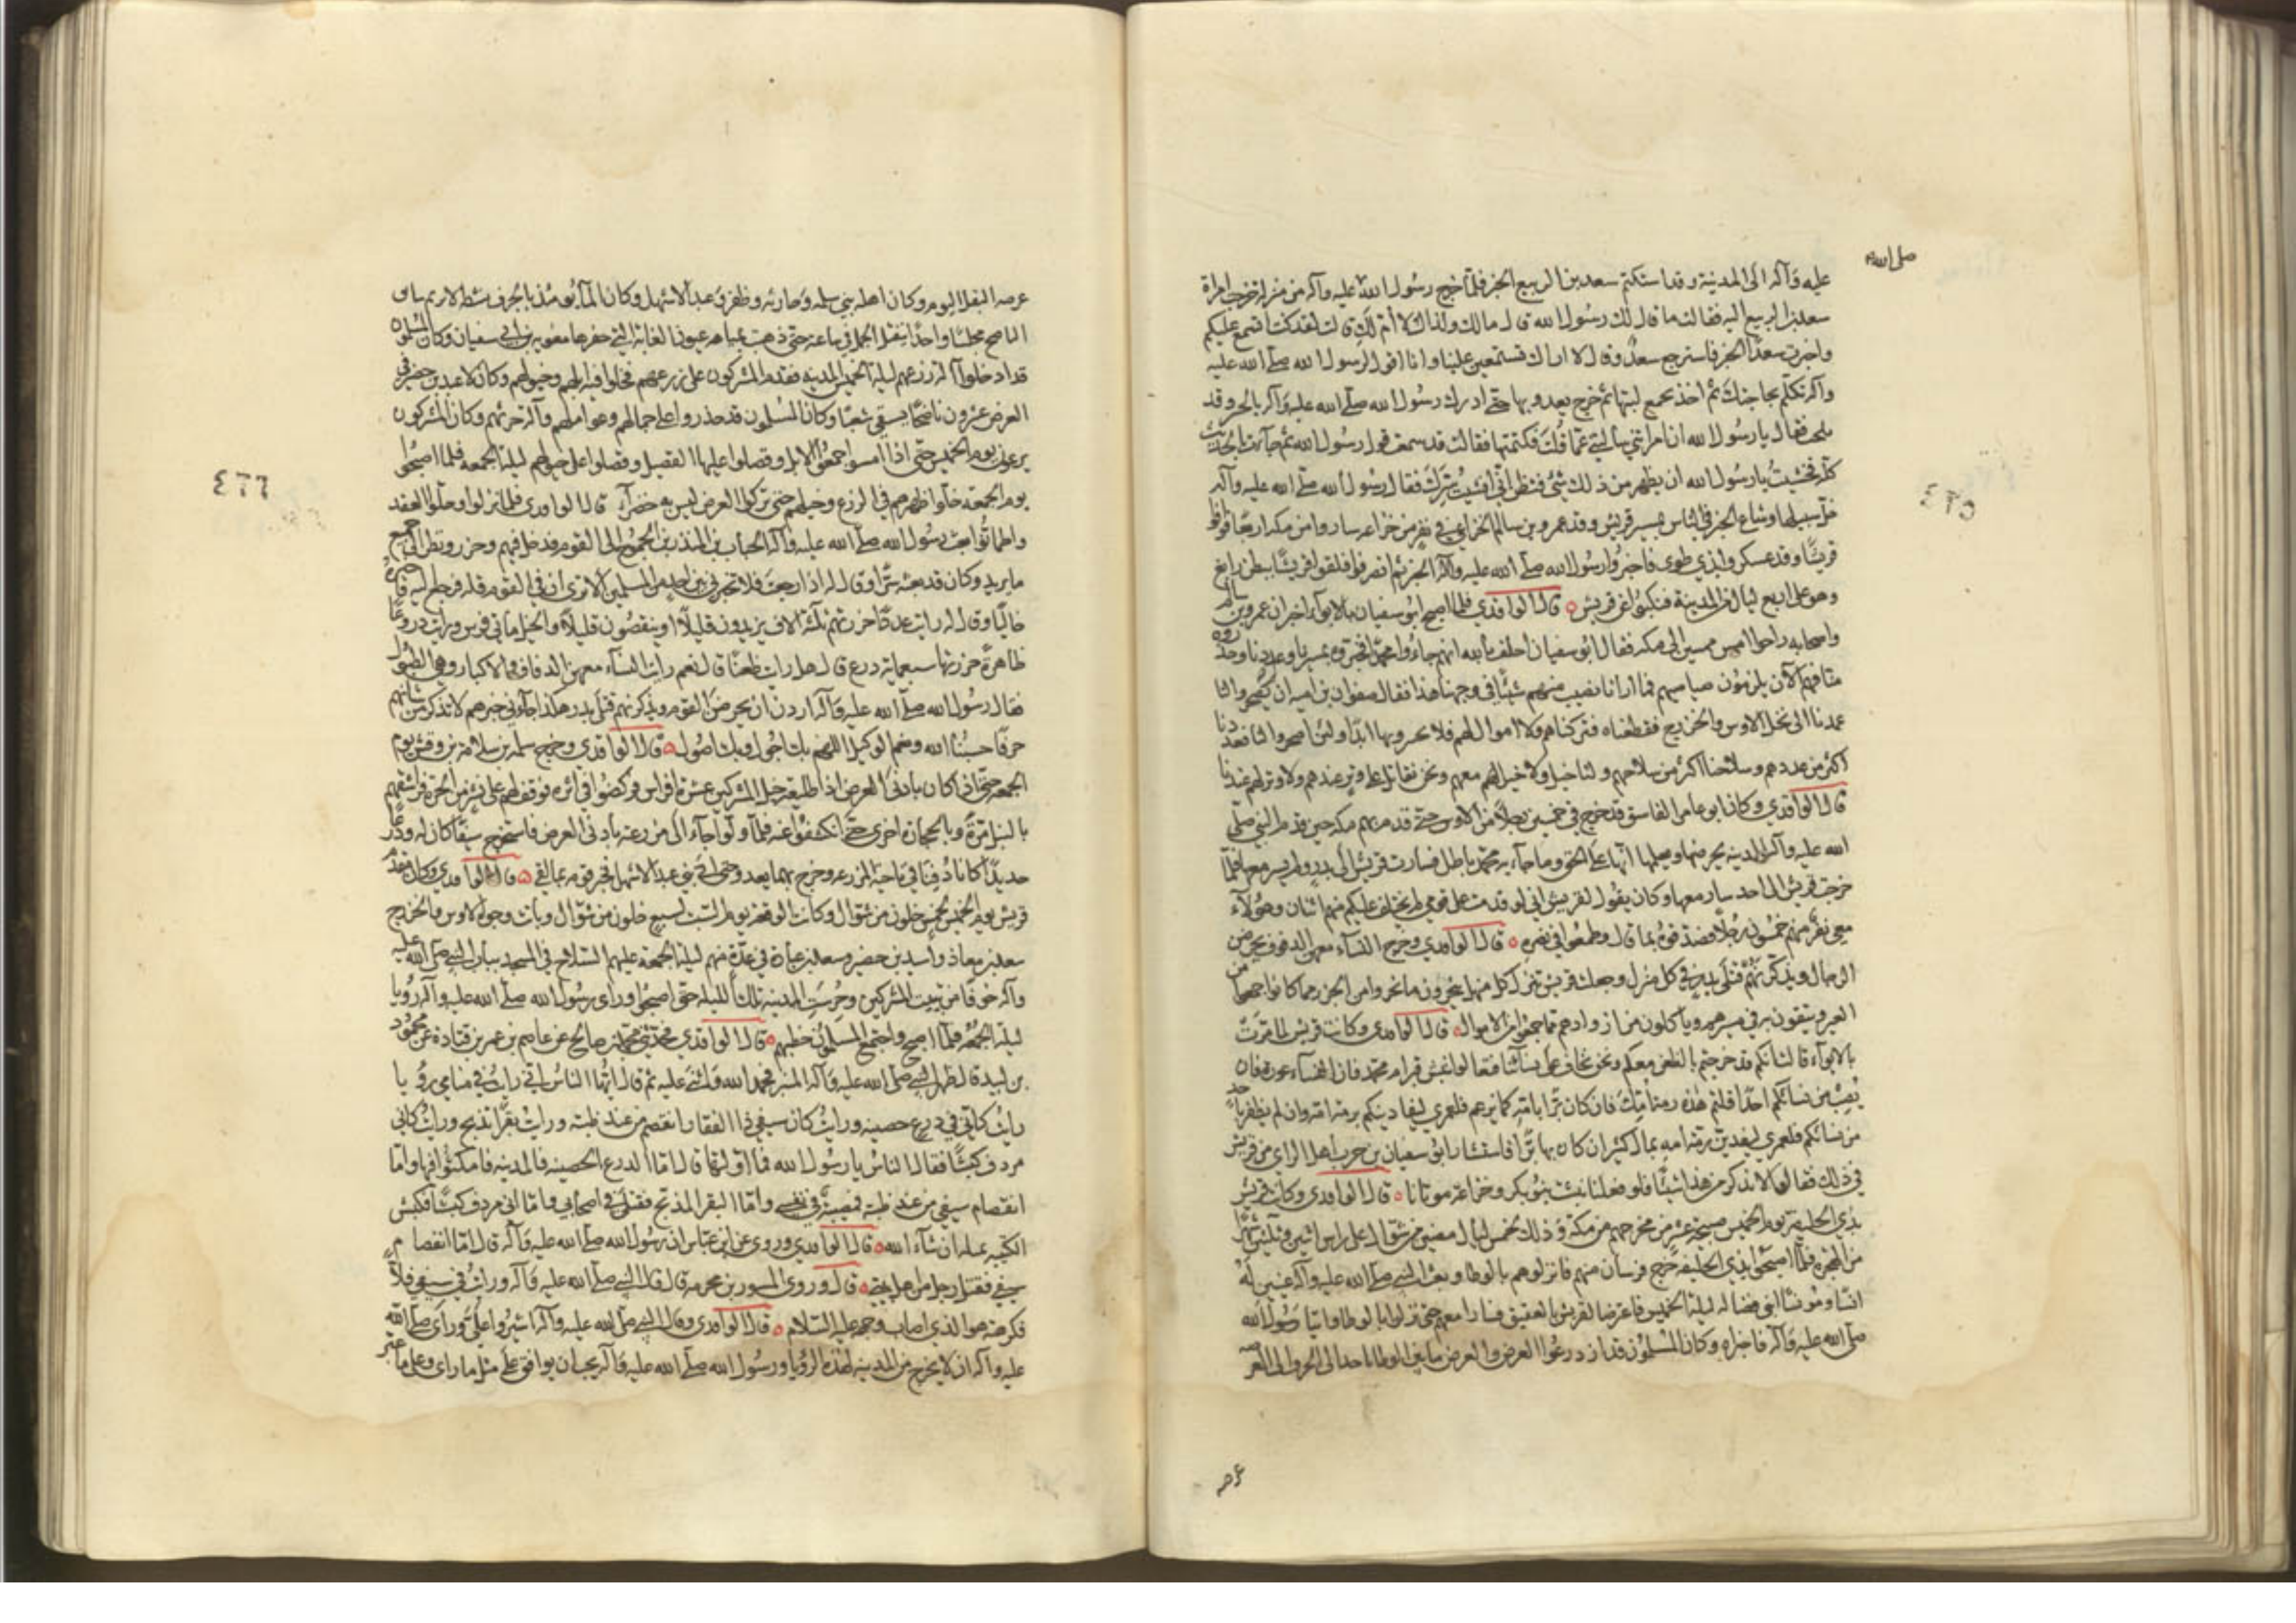 صلى الله
عليه وآله الى المدينة وقد استكتم سعد بن الربيع الخبر فلما خرج رسول الله عليه وآله من منزله خرجت امراة
سعد بن الربيع اليه فقالت ما قال لك رسول الله قال مالك ولذاك لا أم لك قالت لقد كنت اتسمع عليكم
واخبرت سعدا الخبر فاسترجع سعد وقال لا اراك تستمعين علينا وانا اقول لرسول الله صلى الله عليه
وآله تكلم بحاجتك ثم اخذ بجمع لبتها ثم خرج يعدو بها حتى ادرك رسول الله صلى الله عليه وآله بالجسر وقد
بلحت فقال يا رسول الله ان امراتي سألتني عما قلت فكتمتها فقالت قد سمعت قول رسول الله ثم جآءت بالحديث
كله فخشيت يا رسول الله ان يظهر من ذلك شئ فتظن اني افشيت سرك فقال رسول الله صلى الله عليه وآله
خل سبيلها وشاع الخبر في الناس بمسير قريش وقدم عمرو بن سالم الخزاعي في نفر من خزاعه ساروا من مكه اربعا فوافوا
قريشا وقد عسكروا بذي طوى فاخبروا رسول الله صلى الله عليه وآله الخبر ثم انصرفوا فلقوا قريشا ببطن رابغ
وهو على اربع ليال من المدينة فنكبوا عن قريش ه قال الواقدي فلما اصبح ابو سفيان بالابوآء اخبر ان عمرو بن سالم
واصحابه راحوا امس ممسين الى مكه فقال ابو سفيان احلف بالله انهم جاءوا محمدا فخبروه بمسيرنا وعددنا وحذروه
منا فهم الآن يلزمون صياصيهم فما ارانا نصيب منهم شيئا في وجهنا هذا فقال صفوان بن اميه ان لم يصحروا لنا
عمدنا الى نخل الاوس والخزرج فقطعناه فتركناهم ولا اموال لهم فلا يجبروها ابدا ولئن اصحروا لنا فعددنا
اكثر من عددهم وسلاحنا اكثر من سلاحهم ولنا خيل ولا خيل لهم معهم ونحن نقاتل على وتر عندهم ولا وتر لهم عندنا
قال الواقدي وكان ابو عامر الفاسق قد خرج في خمسين رجلا من الاوس حتى قدم بهم مكه حين قدم النبي صلى
الله عليه وآله المدينه يحرضها ويعلمها انها على الحق وما جآء به محمد باطل فسارت قريش الى بدر ولم يسر معها فلما
خرجت قريش الى احد سار معها وكان يقول لقريش اني لو قدمت على قومي لم يختلف عليكم منهم اثنان وهؤلآء
معي نفر منهم خمسون رجلا فصدقوه بما قال وطمعوا في نصره ه قال الواقدي وخرج النسآء معهن الدفوف يحرضن
الرجال ويذكرنهم قتلى بدر في كل منزل وجعلت قريش تنزل كل منهل ينحرون ما نحروا من الجزر مما كانوا جمعوا من
العير ويتقوون به في مسيرهم وياكلون من ازوادهم مما جمعوا من الاموال ه قال الواقدي وكانت قريش لما مرت
بالابوآء قالت انكم قد خرجتم بالظعن معكم ونحن نخاف على نسائنا فتعالوا ننبش قبر ام محمد فان النسآء عورة فان
يصب من نسائكم احدا قلتم هذه رمة امك فان كان برا بامه كما يزعم فلعمري ليفادينكم برمة امه وان لم يظفر باحد
من نسائكم فلعمري ليفدين رمة امه بمال كثير ان كان بها برا فاستشار ابو سفيان بن حرب اهل الراي من قريش
في ذلك فقالوا لا تذكر من هذا شيئا فلو فعلنا نبشت بنو بكر وخزاعة موتانا ه قال الواقدي وكانت قريش
بذي الحليفة يوم الخميس صبيحة عشر من مخرجهم من مكة وذلك لخمس ليال مضين من شوال على راس اثنين وثلثين شهرا
من الهجره فلما اصبحوا بذي الحليفة خرج فرسان منهم فانزلوهم بالوطا وبعث النبي صلى الله عليه وآله عينين له
انسا ومونسا ابني فضاله ليلة الخميس فاعترضا لقريش بالعقيق فسارا معهم حتى نزلوا بالوطا واتيا رسول الله
صلى الله عليه وآله فاخبراه وكان المسلمون قد ازدرعوا العرض والعرض ما بين الوطا باحد الى الجرف الى العرصه
عرصه
٤٦٥
عرصه البقل اليوم وكان اهله بني سلمه وحارثه وظفر وعبد الاشهل وكان المآء يومئذ بالجرف نشطه لا يريم سايق
الناضح مجلسا واحدا ينفتل الجمل في ساعه حتى ذهبت بمياهه عيون الغابة التي حفرها معويه بن ابي سفيان وكان المسلمون
قد ادخلوا آلة زرعهم ليلة الخميس المدينه فقدم المشركون على زرعهم فخلوا فيه ابلهم وخيولهم وكان لاسيد بن حضير في
العرض عشرون ناضحا يسقي شعيرا وكان المسلمون قد حذروا على جمالهم وعواملهم وآلة حرثهم وكان المشركون
يرعون يوم الخميس حتى اذا امسوا جمعوا الابل وقصلوا عليها القصيل وقصلوا على خيولهم ليلة الجمعه فلما اصبحوا
يوم الجمعه خلوا ظهرهم في الزرع وخيلهم حتى تركوا العرض ليس به خضرآء قال الواقدي فلما نزلوا وحلوا العقد
واطمانوا بعث رسول الله صلى الله عليه وآله الحباب بن المنذر بن الجموح الى القوم فدخل فيهم وحزر ونظر الى جميع
ما يريد وكان قد بعثه سرا وقال له اذا رجعت فلا تخبرني بين احد من المسلمين الا ترى ان في القوم قله فرجع اليه فاخبره
خاليا وقال له رايت عددا حزرتهم ثلثة آلاف يزيدون قليلا او ينقصون قليلا والخيل مأتي فرس ورايت دروعا
ظاهرة حزرتها سبعماية درع قال هل رايت ظعنا قال نعم رايت النسآء معهن الدفاف والاكبار وهي الطبول
فقال رسول الله صلى الله عليه وآله اردن ان يحرضن القوم ويذكرنهم قتلى بدر هكذا جآءني خبرهم لا تذكر من شانهم
حرفا حسبنا الله ونعم الوكيل اللهم بك احول وبك اصول ه قال الواقدي وخرج سلمه بن سلامة بن وقش يوم
الجمعه حتى اذا كان بادنى العرض اذا طليعة خيل المشركين عشرة افراس فركضوا في اثره فوقف لهم على نشز من الحرة فراشقهم
بالنبل مرة وبالحجارة اخرى حتى انكشفوا عنه فلما ولوا جآء الى مزرعته بادنى العرض فاستخرج سيفا كان له ودرع
حديد كانا دفنا في ناحية المزرعه وخرج بهما يعدو حتى اتى بني عبد الاشهل فخبر قومه بما لقي ه قال الواقدي وكان مقدم
قريش يوم الخميس لخمس خلون من شوال وكانت الوقعة يوم السبت لسبع خلون من شوال وباتت وجوه الاوس والخزرج
سعد بن معاذ واسيد بن حضير وسعد بن عبادة في عدة منهم ليلة الجمعة عليهم السلاح في المسجد بباب النبي صلى الله عليه
وآله خوفا من تبييت المشركين وحرست المدينه تلك الليله حتى اصبحوا وراى رسول الله صلى الله عليه وآله رؤيا
ليلة الجمعه فلما اصبح واجتمع المسلمون خطبهم ه قال الواقدي فحدثني محمد بن صالح عن عاصم بن عمر بن قتادة عن محمود
بن لبيد قال ظهر النبي صلى الله عليه وآله المنبر فحمد الله واثنى عليه ثم قال ايها الناس اني رايت في منامي رؤيا
رايت كاني في درع حصينه ورايت كان سيفي ذا الفقار انفصم من عند ظبته ورايت بقرا تذبح ورايت كاني
مردف كبشا فقال الناس يا رسول الله فما اولتها قال اما الدرع الحصينه فالمدينه فامكثوا فيها واما
انفصام سيفي من عند ظبته فمصيبة في نفسي واما البقر المذبح فقتلى في اصحابي واما اني مردف كبشا فكبش
الكتيبه نقتله ان شاء الله ه قال الواقدي وروي عن ابن عباس ان رسول الله صلى الله عليه وآله قال اما انفصام
سيفي فقتل رجل من اهل بيتي ه قال وروى المسور بن مخرمه قال قال النبي صلى الله عليه وآله ورايت في سيفي فلا
فكرهته هو الذي اصاب وجهه عليه السلام ه قال الواقدي وقال النبي صلى الله عليه وآله اشيروا علي وراى صلى الله
عليه وآله ان لا يخرج من المدينه لهذه الرؤيا ورسول الله صلى الله عليه وآله يحب ان يوافق على مثل ما راى وعلى ما عبر
٤٦٦